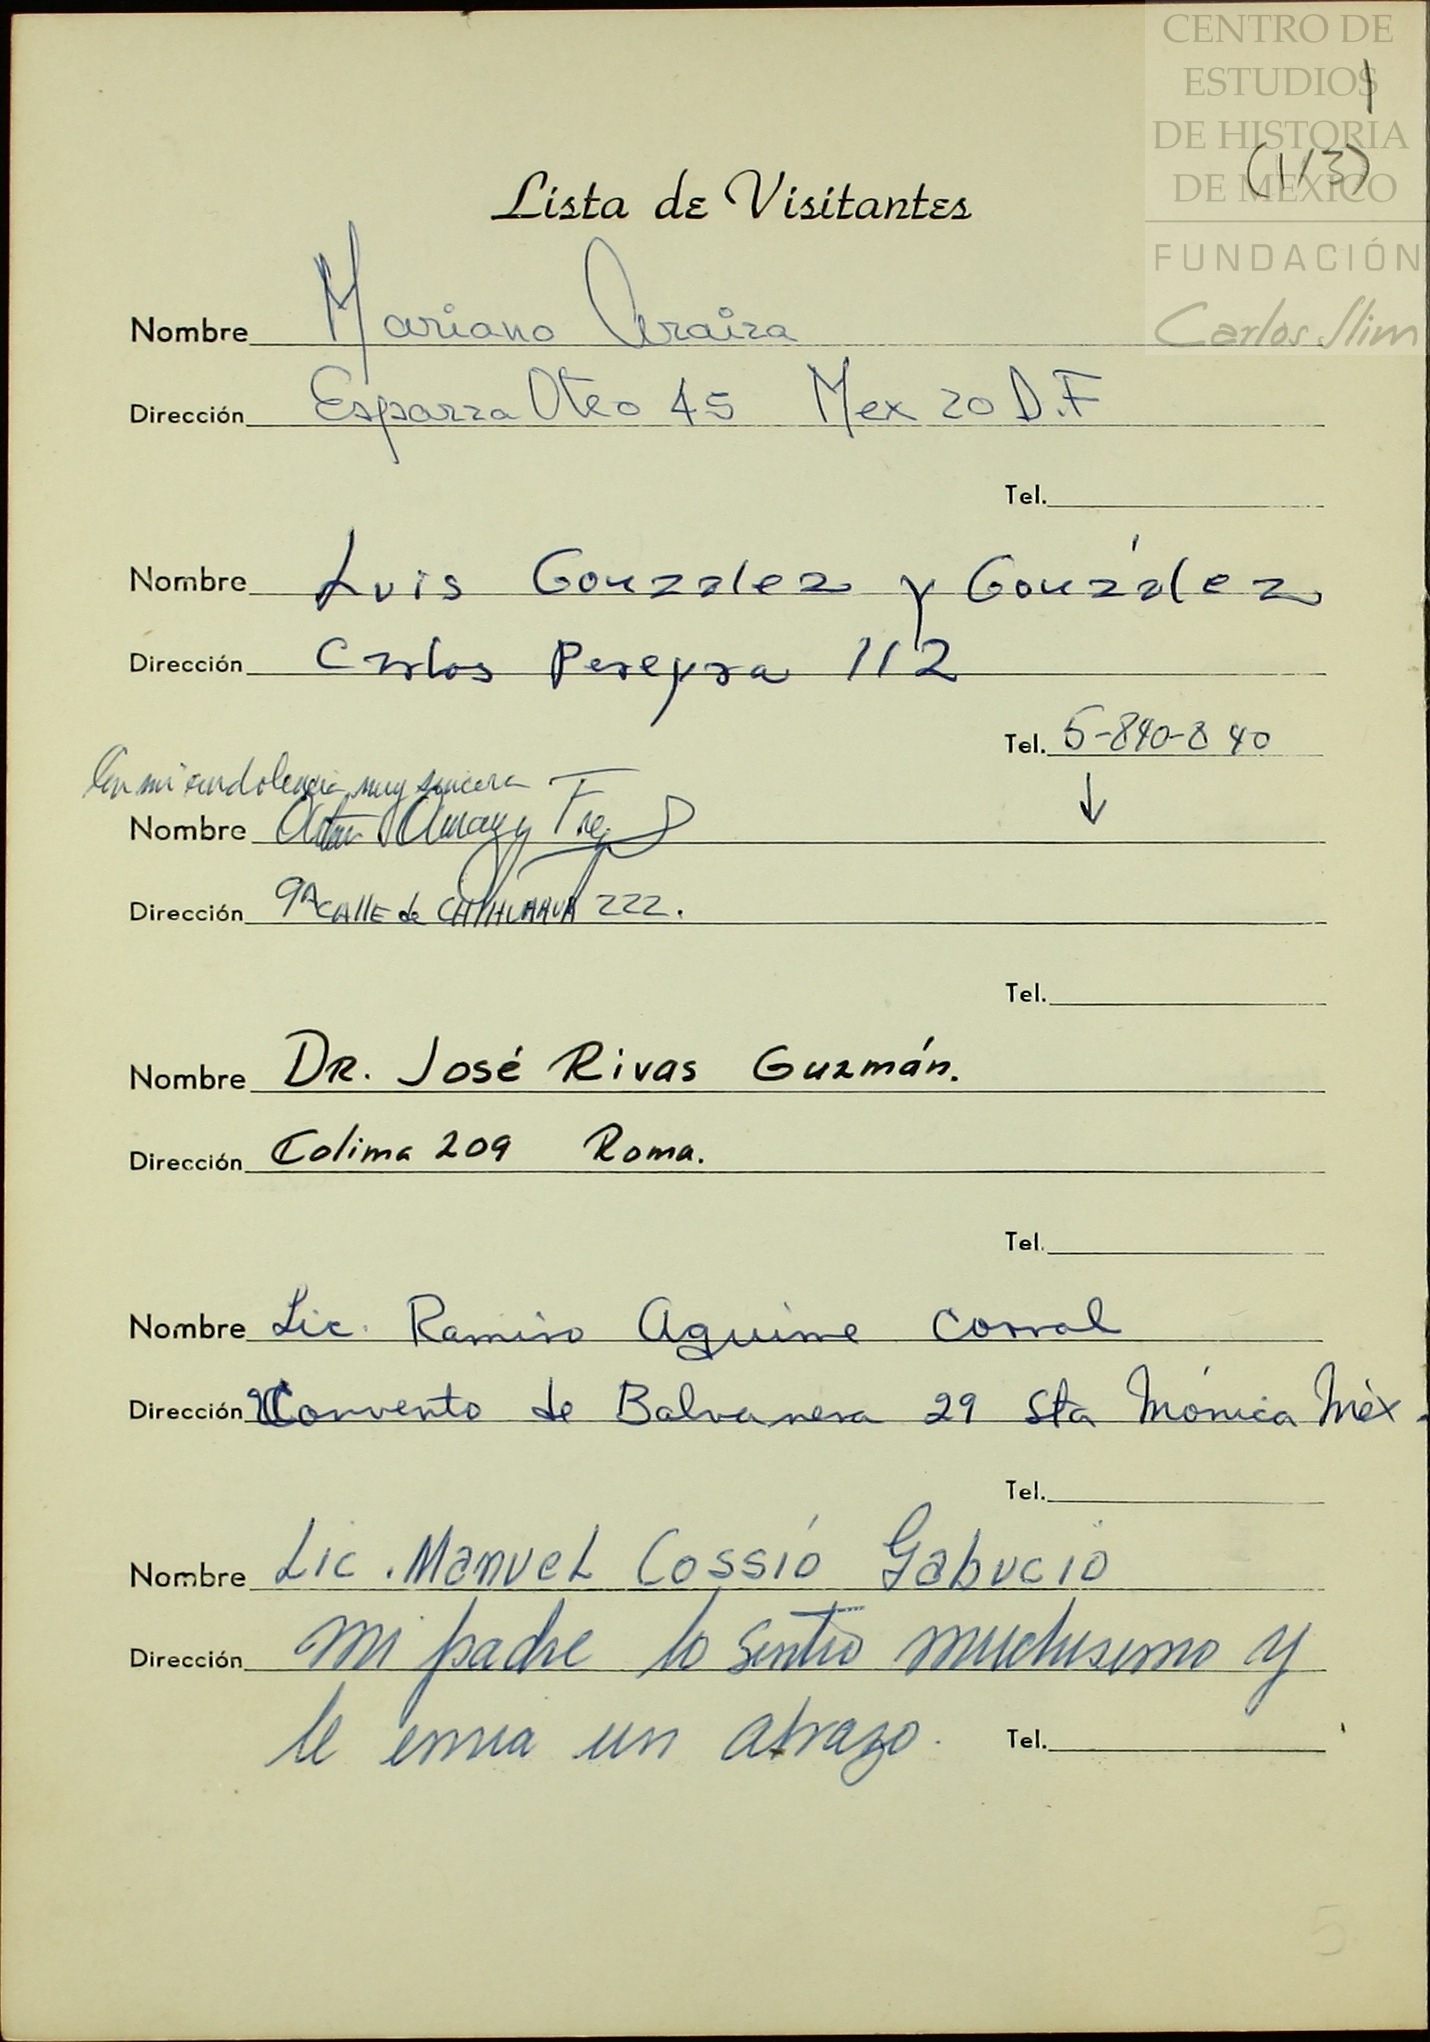 CENTRO DE
ESTUDIOS
DE HISTORIA
DE MÉXICO
FUNDACIÓN
Carlos Slim
1
(113)
Lista de Visitantes
Nombre Mariano
Dirección Esparza Oteo 45 Mex 20 D.F
Tel.
Nombre Luis Gonzalez y González
Dirección Carlos Pereyra 112
Tel. 5-840-840
mi condolencia muy sincera
↓
Nombre
Dirección 9A CALLE de CHIHUAHUA 222.
Tel.
Nombre DR. José Rivas Guzmán.
Dirección Colima 209 Roma.
Tel.
Nombre Lic. Ramiro Aguirre Corral
Dirección Convento de Balvanera 29 Sta Mónica Méx.
Tel.
Nombre Lic. Manuel Cossió Gabucio
Dirección Mi padre lo sentio muchisimo y
le envia un abrazo. Tel.
5